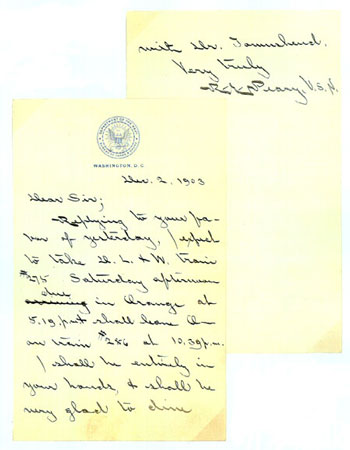 WASHINGTON, D.C.
Dec. 2, 1903
Dear Sir;
Replying to your fa-
vor of yesterday, I expect
to take D. L. & W. train
#275 Saturday afternoon
due
in Orange at
5.19 p.m. & shall leave O—
on train #286 at 10.39 p.m.
I shall be entirely in
your hands, & shall be
very glad to dine
with Dr. Townshend.
Very truly
R. E. Peary, U.S.N.